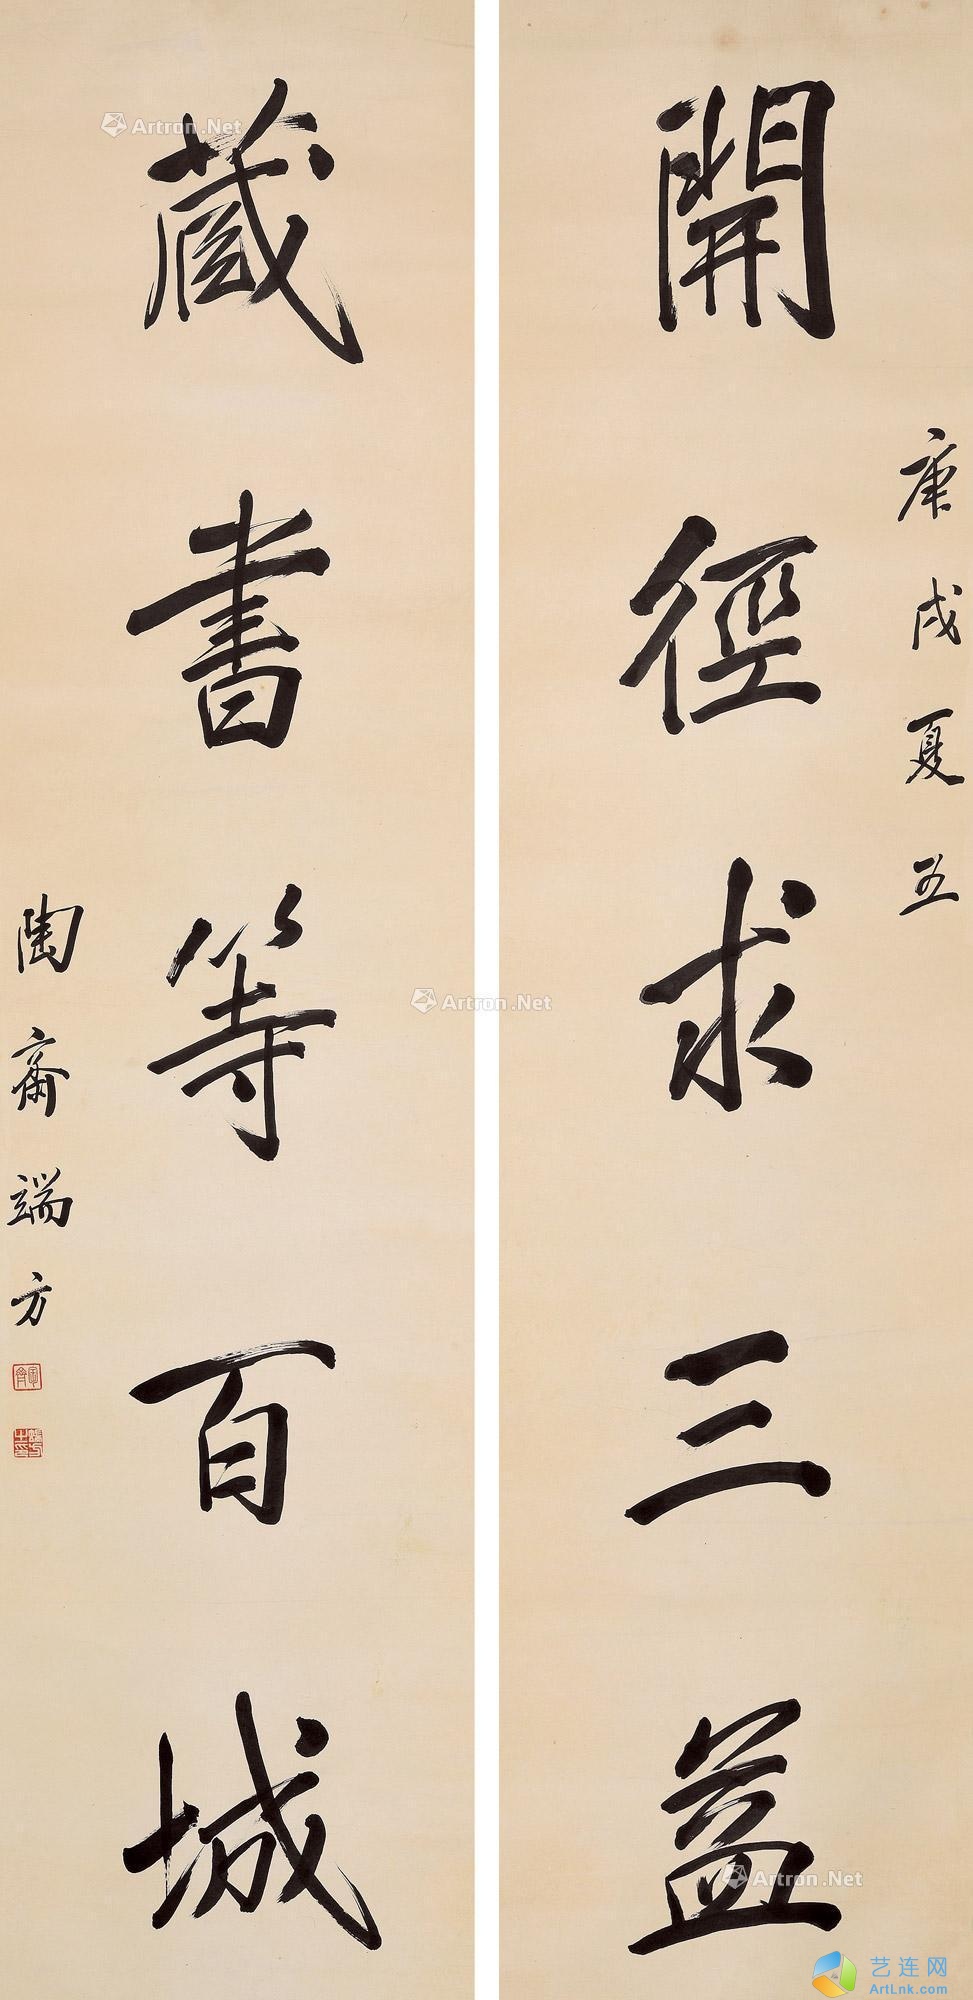 庚戌夏五
開徑求三益
藏書等百城
陶齋端方
陶齋
端方之印
Artron.Net
Artron.Net
Artron.Net
艺连网
ArtLnk.com